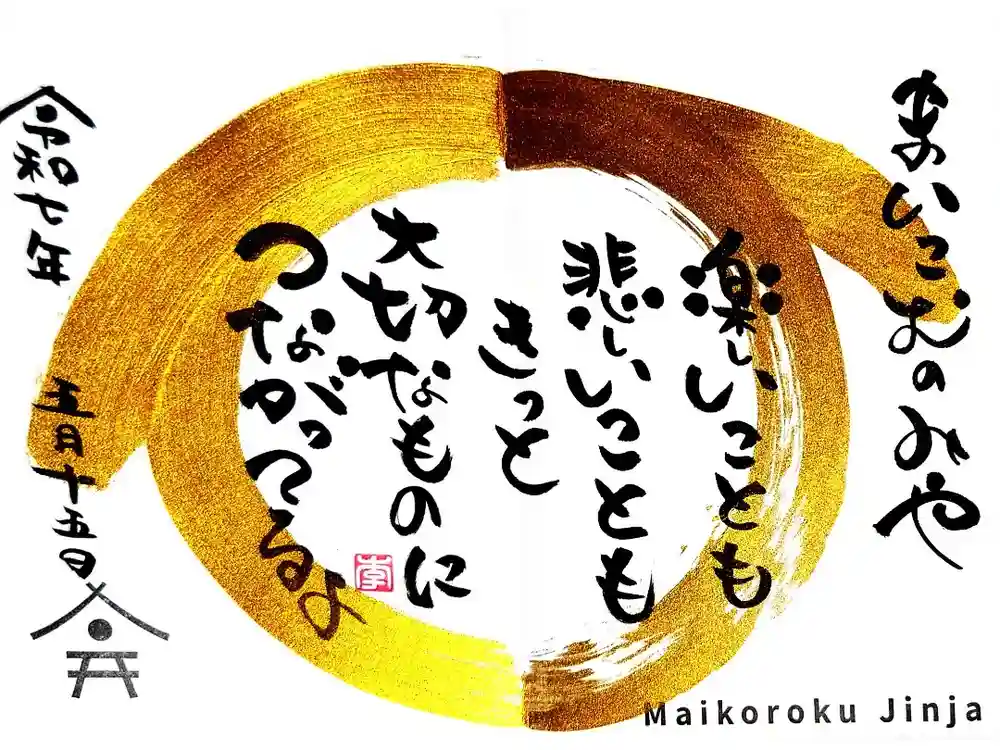 まいこむのみや
楽しいことも
悲しいことも
きっと
大切なものに
つながってるよ
令和七年
五月十五日
Maikoroku Jinja